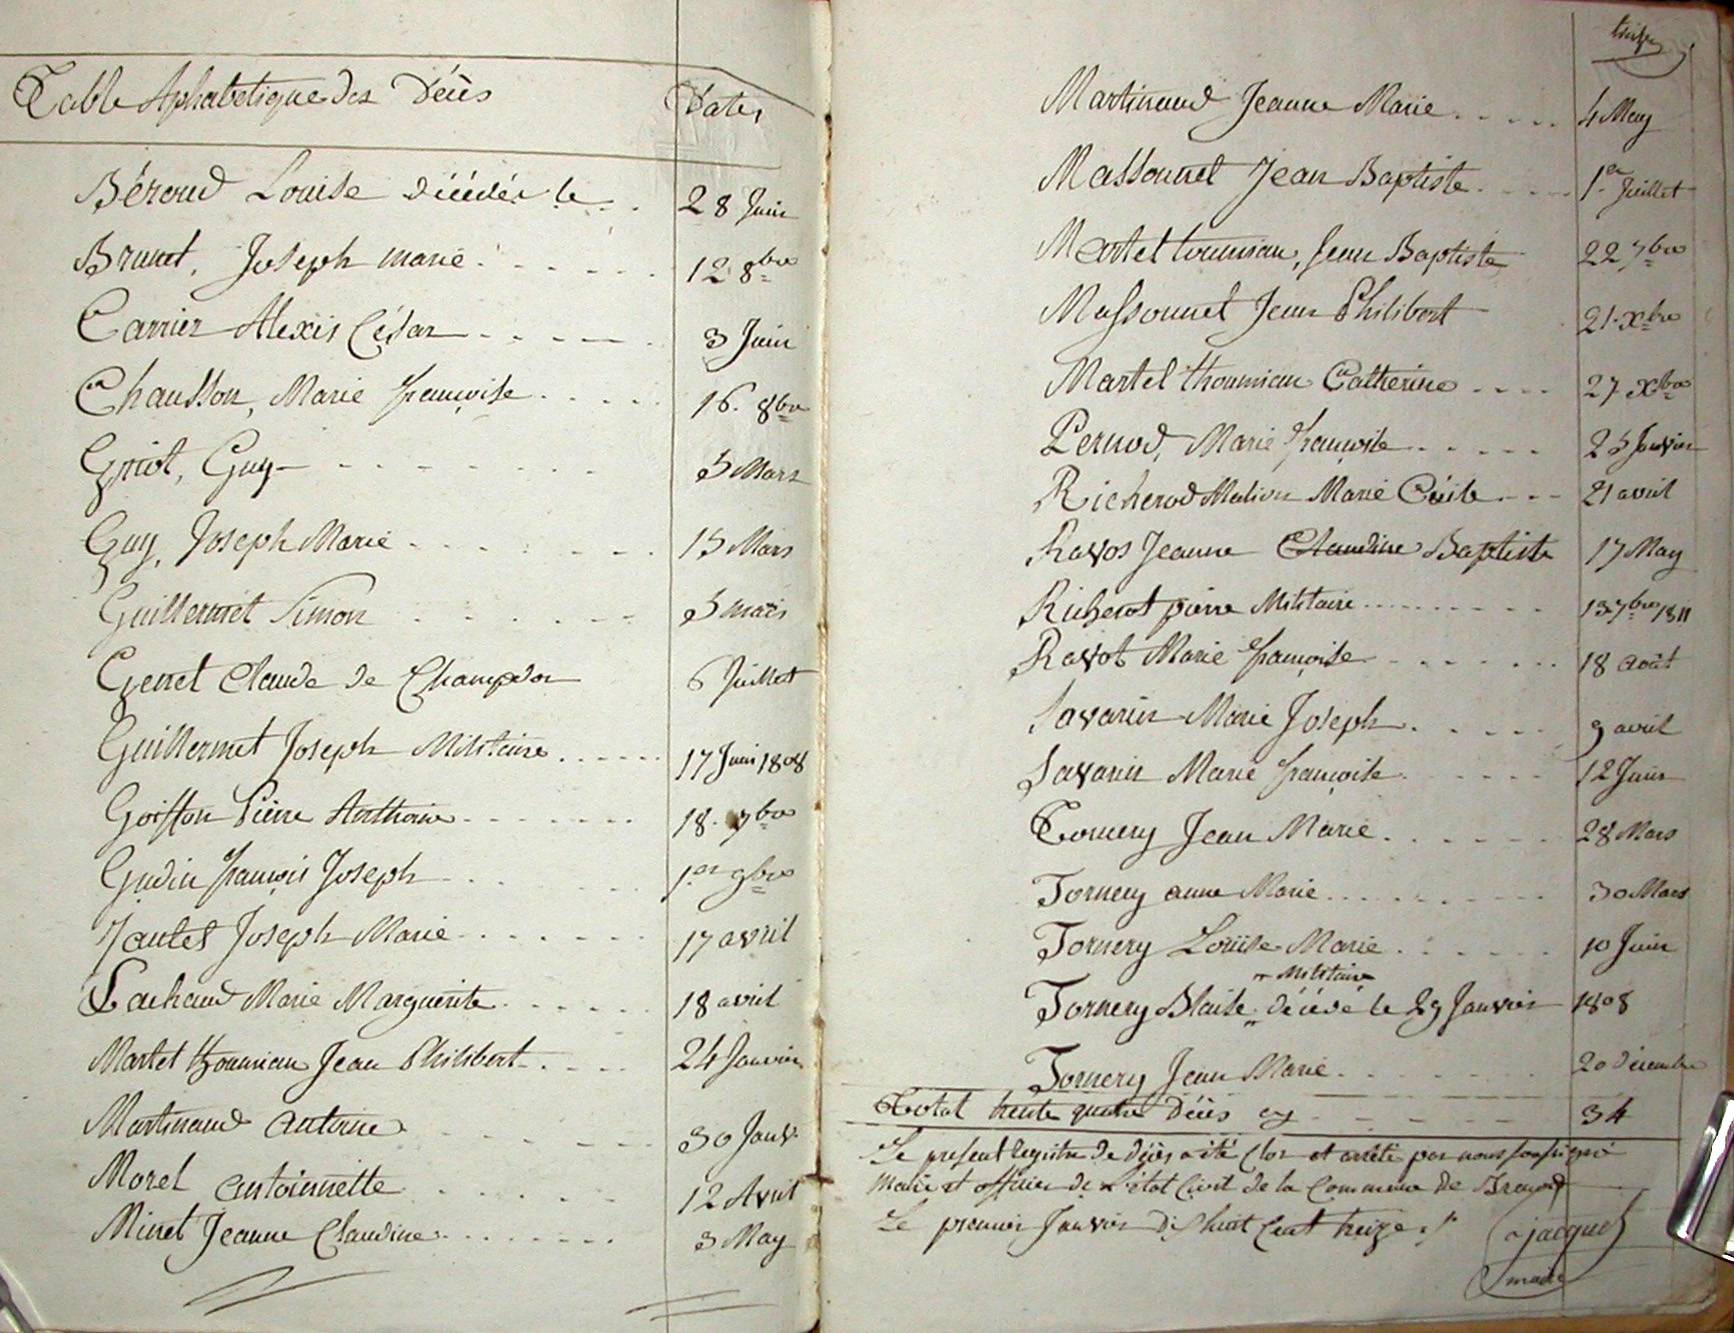 Table Alphabetique des Décès Dates
Béroud Louise décédée le 28 Juin
Brunet, Joseph marie 12 8bre
Carrier Alexis César 3 Juin
Chausson, Marie françoise 16. 8bre
Griot, Guy 5 Mars
Guy, Joseph Marie 15 Mars
Guillermet Simon 5 mars
Genet Claude de Champdor 6 Juillet
Guillermet Joseph Militaire 17 Juin 1808
Goiffon Pierre Anthoine 18. 7bre
Gudin françois Joseph 1.er 9bre
Jantet Joseph Marie 17 avril
Lachaud Marie Marguerite 18 avril
Martel thoumian Jean Philibert 24 Janvier
Martinaud antoine 30 Janv.
Morel antoinette 12 Avril
Minet Jeanne Claudine 3 May
Martinaud Jeanne Marie 4 May
Massonnet Jean Baptiste 1.er Juillet
Martel toumian, Jean Baptiste 22 7bre
Massonnet Jean Philibert 21. Xbre
Martel thoumian Catherine 27 Xbre
Pernod, Marie françoise 25 Janvier
Richerod Melion Marie Cécile 21 avril
Ravos Jeanne Claudine Baptiste 17 May
Richerot pierre Militaire 13 7bre 1811
Ravot Marie françoise 18 août
Savarin Marie Joseph 9 avril
Savarin Marie françoise 12 Juin
Tornery Jean Marie 28 Mars
Tornery anne Marie 30 Mars
Tornery Louise Marie 10 Juin
Militaire
Tornery Blaise décédé le 29 Janvier 1808
Tornery Jean Marie 20 décembre
Total trente quatre Décès cy 34
Le present Registre de décès a été Clos et arrêté par nous soussigné
Maire et officier de l'état Civil de la Commune de Brenod
Le premier Janvier dix huit Cent treize ./.
Jacquet
maire